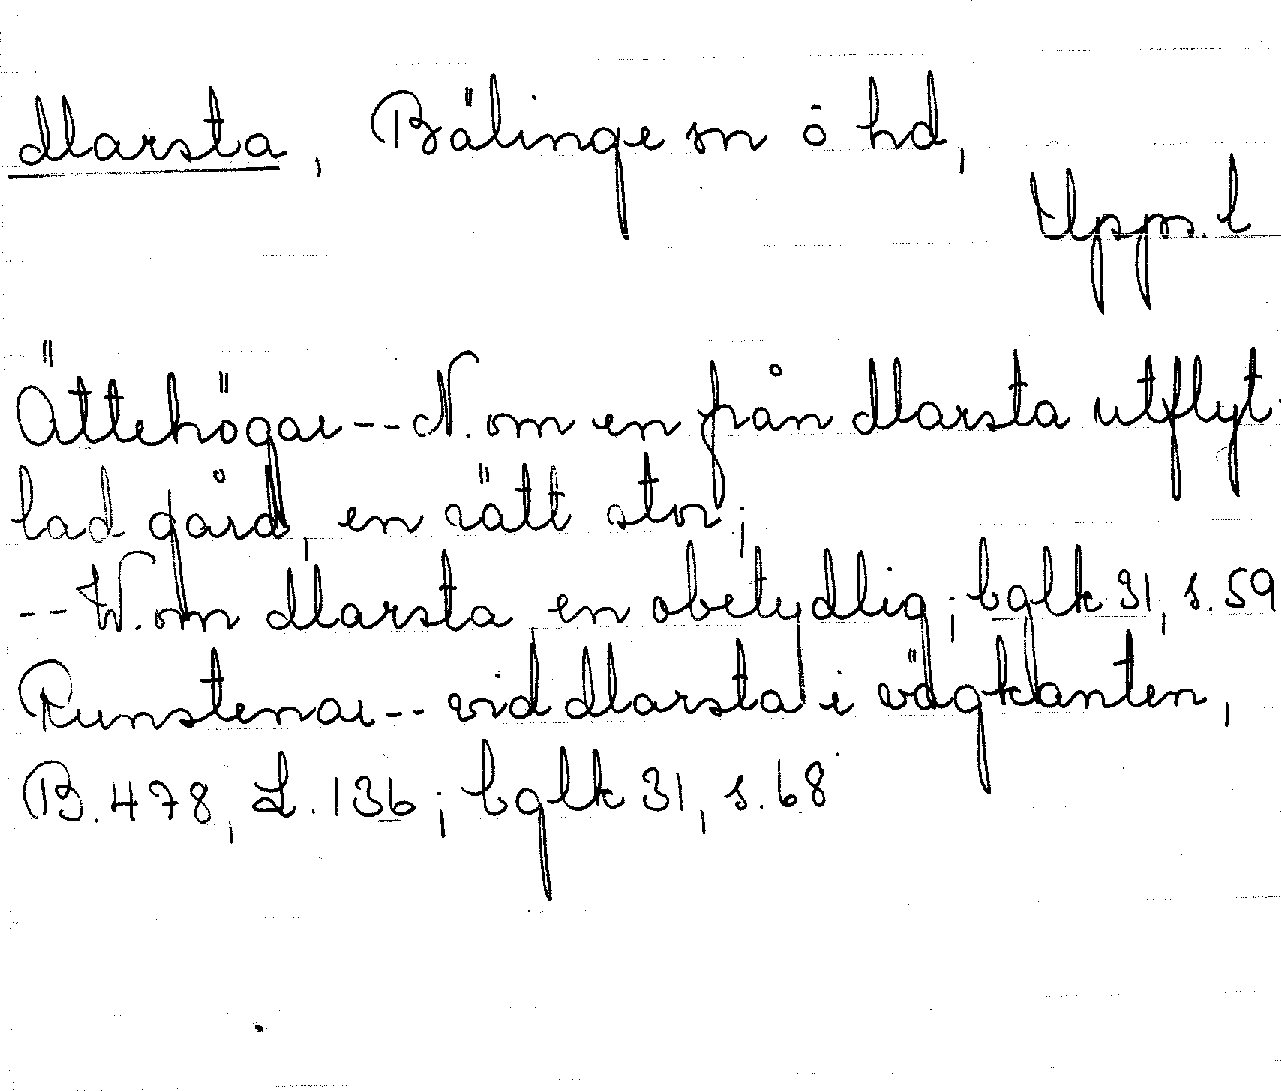 Marsta, Bälinge sn o hd,
Upps. l
Ättehögar -- N. om en från Marsta utflyt-
tad gård, en rätt stor;
-- V. om Marsta en obetydlig; bglk 31, s. 59
Runstenar -- vid Marsta i vägkanten,
B. 478, L. 136; bglk 31, s. 68